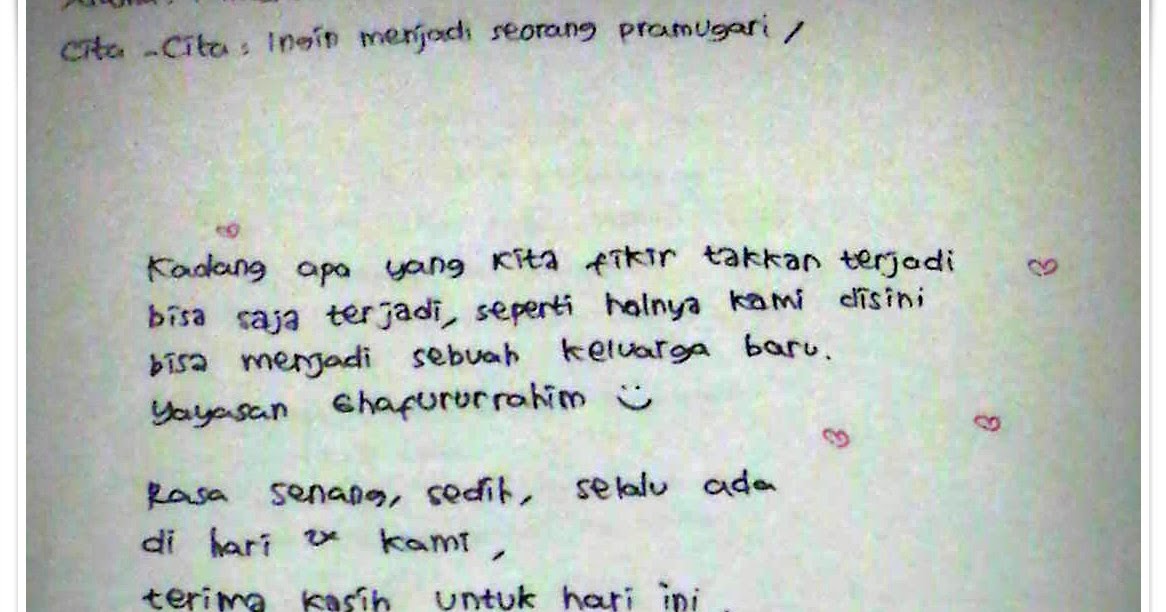 Cita-Cita : Ingin menjadi seorang pramugari /
Kadang apa yang kita fikir takkan terjadi
bisa saja terjadi, seperti halnya kami disini
bisa menjadi sebuah keluarga baru.
Yayasan Ghafururrahim :)
Rasa senang, sedih, selalu ada
di hari 2x kami,
terima kasih untuk hari ini